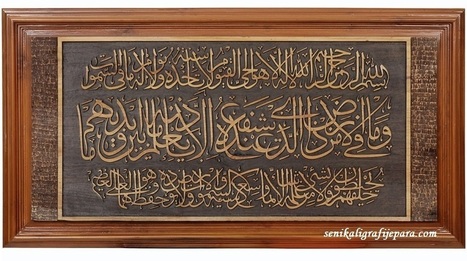 بسم الله الرحمن الرحيم الله لا إله إلا هو الحي القيوم لا تأخذه سنة ولا نوم له ما في السموات
وما في الأرض من ذا الذي يشفع عنده إلا بإذنه يعلم ما بين أيديهم وما
خلفهم ولا يحيطون بشيء من علمه إلا بما شاء وسع كرسيه السموات والأرض ولا يؤده حفظهما وهو العلي العظيم
senikaligrafijepara.com